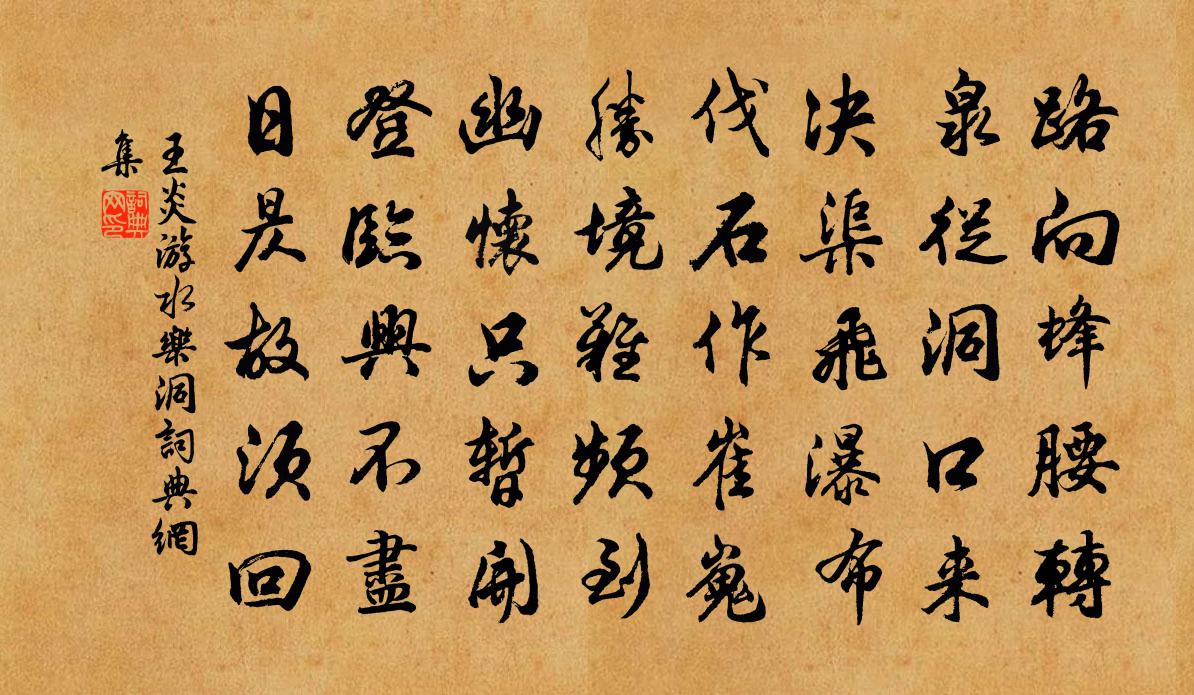 路向蜂腰轉
泉從洞口来
决渠飛瀑布
伐石作崔嵬
勝境難頻到
幽懷只暫開
登臨興不盡
日昃故須回
王炎游水樂洞詞典網
集
詞典
网印